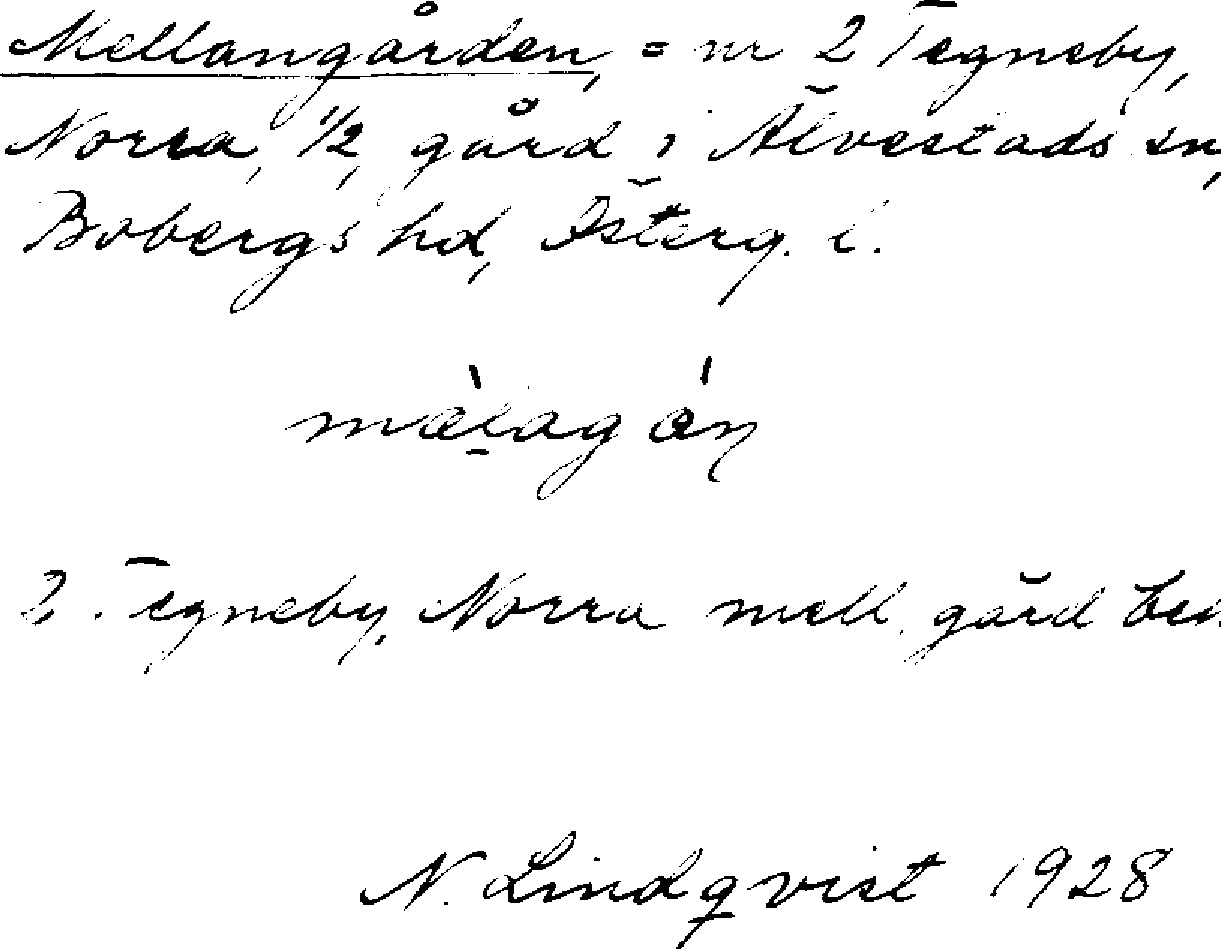 Mellangården, = nr 2 Tegneby,
Norra, 1/2, gård i Älvestads sn,
Bobergs hd, Österg. l.
mæ̀lagáṇ
2. Tegneby, Norra mell. gård
N. Lindqvist 1928